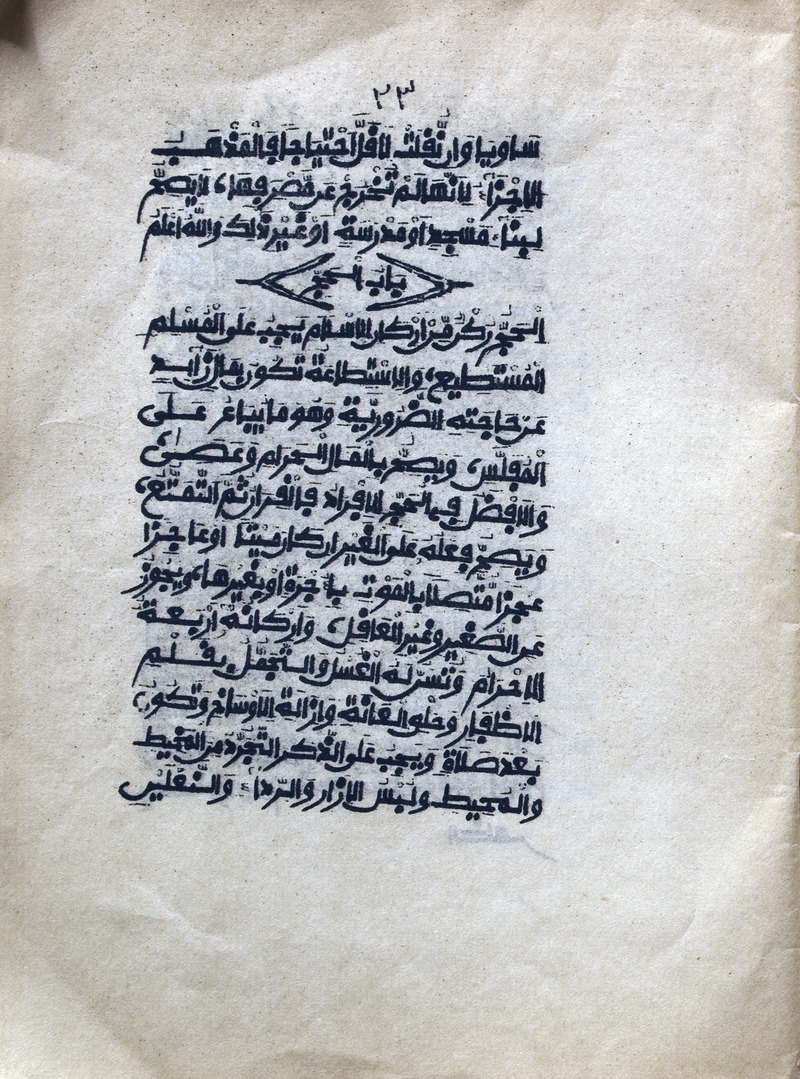 ٢٣
ساويا وان نقلت لاقل احتياجا فالمذهب
الاجزاء لانها لم تخرج عن مصرفها، لا يصح
لبناء مسجد او مدرسة او غير ذلك والله اعلم
باب الحج
الحج ركن من اركان الاسلام يجب على المسلم
المستطيع، والاستطاعة تكون بمال زايد
عن حاجته الضرورية وهو ما يباع على
المفلس، ويصح بالمال الحرام وعصى
والافضل في الحج الافراد فالقران ثم التمتع،
ويصح فعله على الغير ان كان ميتا او عاجزا
عجزا متصلا بالموت باجرة او بغيرها، ويجوز
عن الصغير وغير العاقل، واركانه اربعة
الاحرام وتسن له الغسل والتجمل بقلم
الاظفار وحلق العانة وازالة الاوساخ وتكون
بعد صلاة ويجب على الذكر التجرد من المخيط
والمحيط ولبس الازار والرداء والنعلين